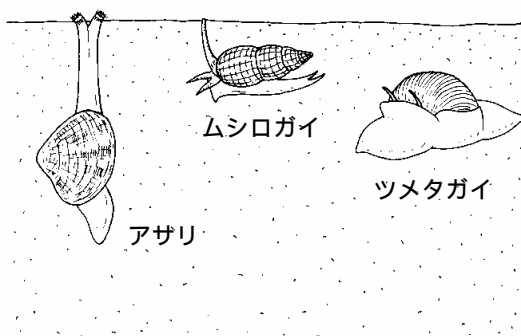 ムシロガイ
ツメタガイ
アサリ